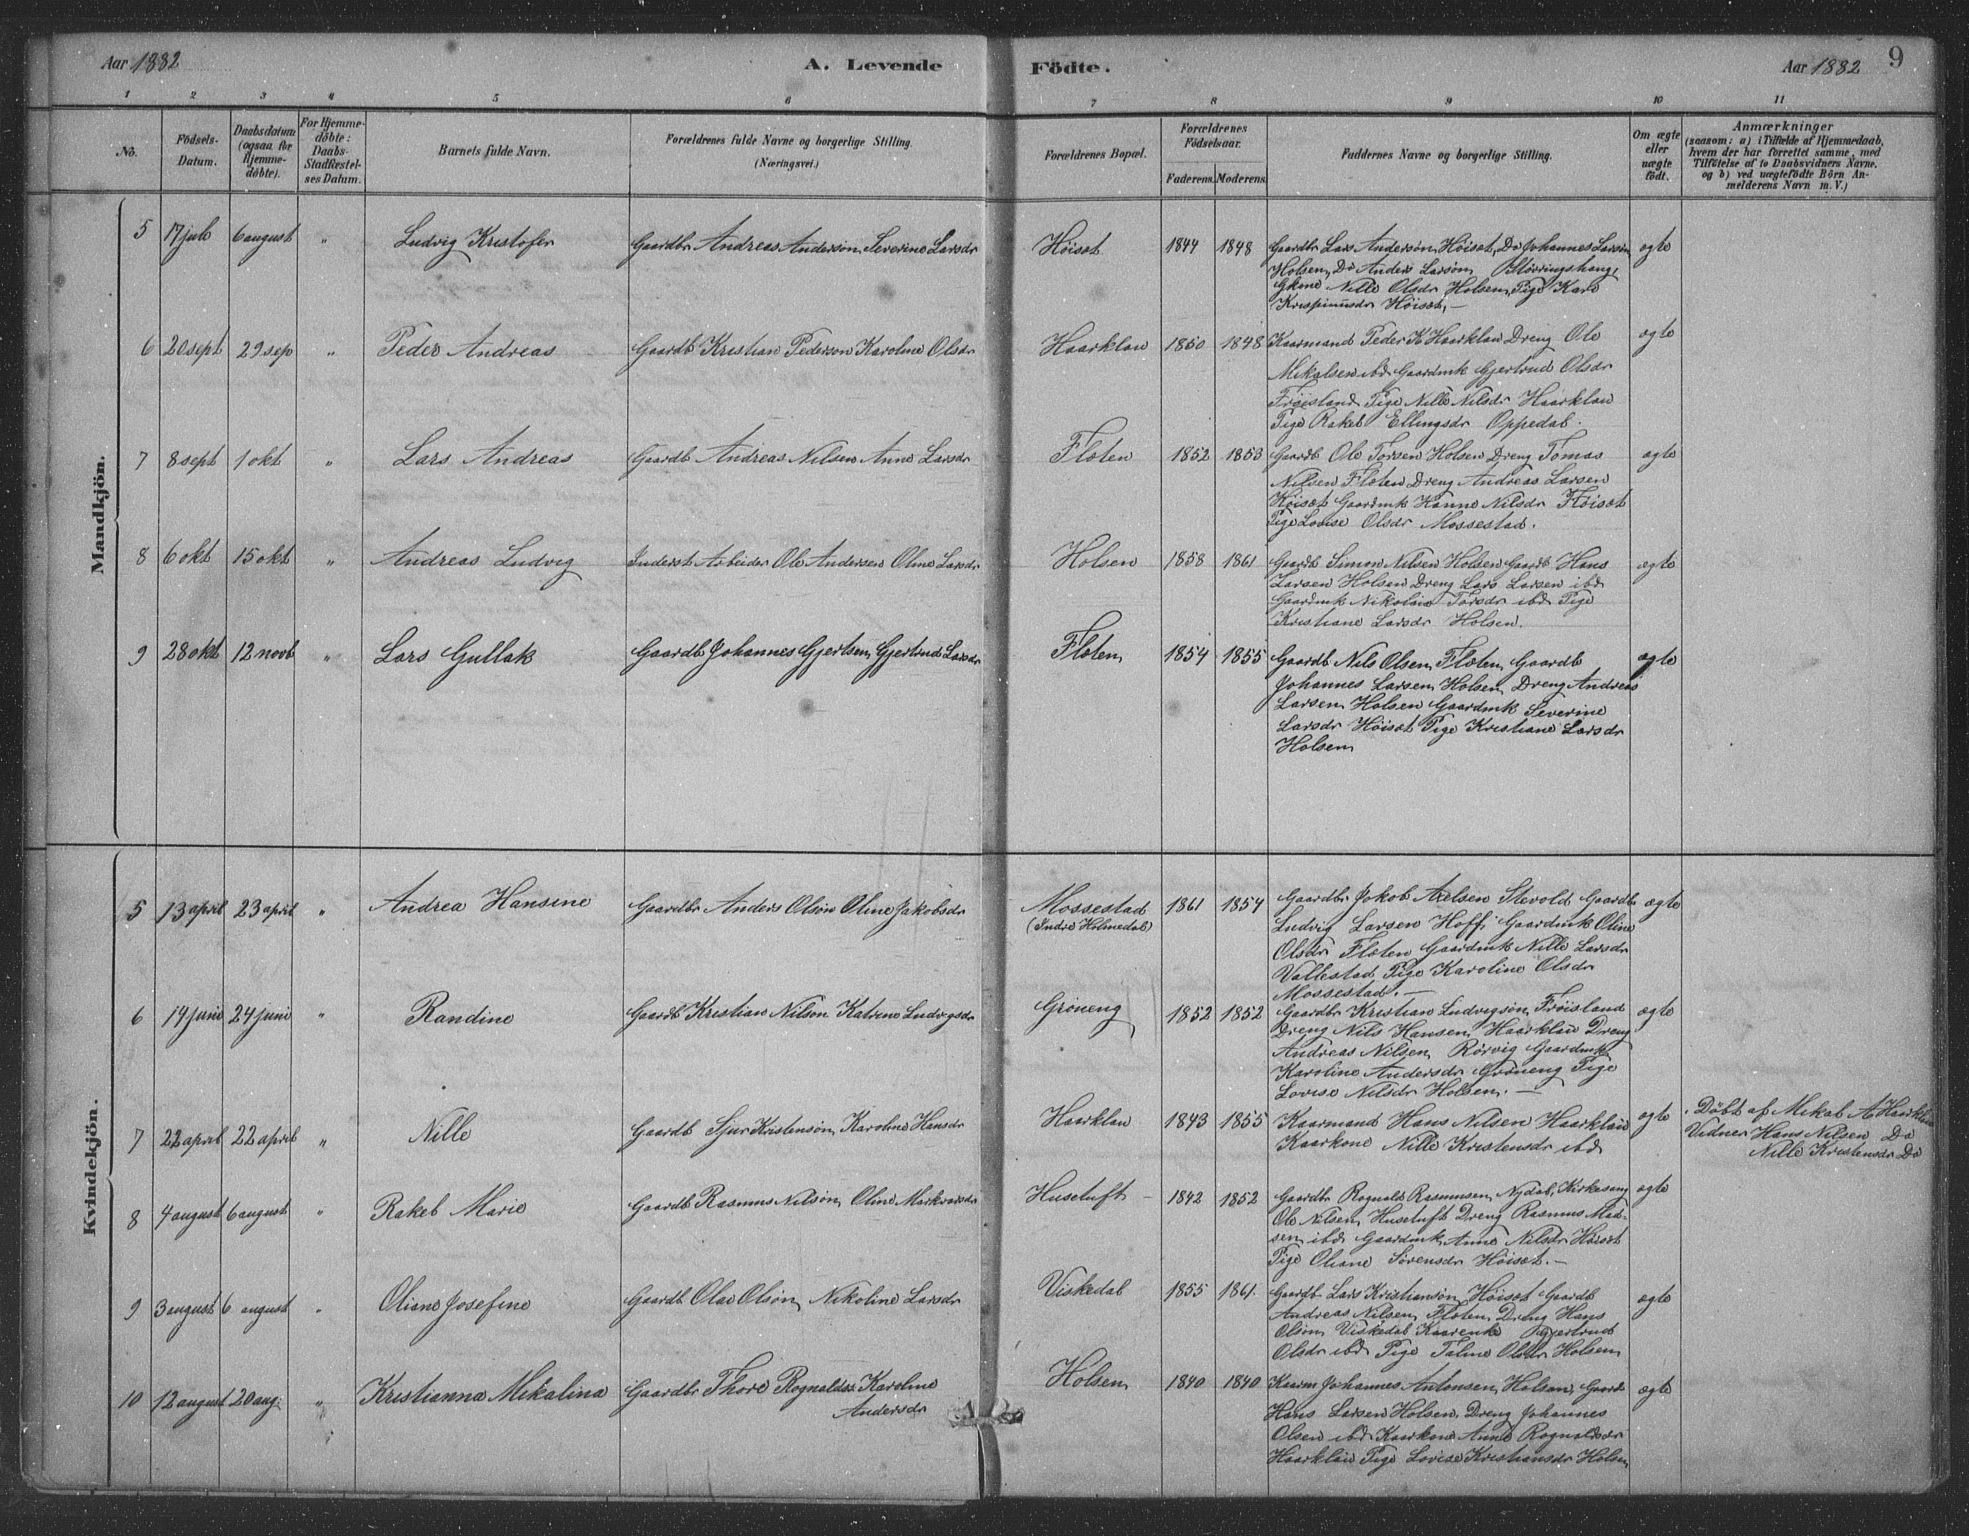 Aar 1882
A. Levende Födte.
Aar 1882
9
1 2 3 4 5 6 7 8 9 10 11
No.
Födsels-Datum.
Daabsdatum (ogsaa for Hjemme-döbte).
For Hjemme-döbte: Daabs-Stadfæstel-ses Datum.
Barnets fulde Navn.
Forældrenes fulde Navne og borgerlige Stilling. (Næringsvei.)
Forældrenes Bopæl.
Forældrenes Födselsaar.
Faderens. Moderens.
Faddernes Navne og borgerlige Stilling.
Om ægte eller uægte födt.
Anmærkninger
(saasom: a) i Tilfælde af Hjemmedaab,
hvem der har forrettet samme, med
Tilföielse af to Daabsvidners Navne,
og b) ved uægtefödte Börn An-
melderens Navn m. V.)
Mandkjön.
5 17 juli 6 august " Ludvig Kristofer Gaardbr Andreas Anderson, Severine Larsdr Höiset 1844 1848 Gaardbr Lars Anderson, Höiset, Do Johannes Larsen ægte
Holsen, Do Anders Larsøn,
Gkone Nille Olsdr Holsen, Pige Kari
Krispinusdr Höiset, —
6 20 sept 29 sep " Peder Andreas Gaardb Kristian Pederson Karoline Olsdr Haarklau 1850 1848 Kaarmand Peder K Haarklau Dreng Ole ægte
Mikalsen ibd Gaardmk Gjertrud Olsdr
Fröisland Pige Nille Nilsdr Haarklau
Pige Rakel Ellingsdr Oppedal.
7 8 sept 1 okt " Lars Andreas Gaardb Andreas Nilsen Anne Larsdr Floten 1852 1853 Gaardb Ole Torsen Holsen Dreng Tomas ægte
Nilsen Floten Dreng Andreas Larsen
Höiset Gaardmk Hanne Nilsdr Höiset
Pige Lovise Olsdr Mossestad.
8 6 okt 15 okt " Andreas Ludvig Inderst Arbeider Ole Andersen Oline Larsdr Holsen 1858 1861 Gaardb Simon Nilsen Holsen Gaardb Hans ægte
Larsen Holsen Dreng Lars Larsen ibd
Gaardmk Nikolai Torsdr ibd Pige
Kristiane Larsdr Holsen.
9 28 okt 12 novb " Lars Gullak Gaardb Johannes Gjertsen, Gjertrud Larsdr Floten 1854 1855 Gaardb Nils Olsen, Floten, Gaardb ægte
Johannes Larsen, Holsen, Dreng Andreas
Larsen, Holsen Gaardmk Severine
Larsdr Höiset Pige Kristiane Larsdr
Holsen
Kvindekjön.
5 13 april 23 april " Andrea Hansine Gaardbr Anders Olson Oline Jakobsdr Mossestad 1861 1854 Gaardbr Jakob Axelsen Stevold Gaardb ægte
(Indre Holmedal) Ludvig Larsen Hoff, Gaardmk Oline
Olsdr Floten Gaardmk Nille Larsdr
Vallestad, Pige Karoline Olsdr
Mossestad. —
6 14 juni 24 juni " Randine Gaardb Kristian Nilson Katrine Ludvigsdr Gröneng 1852 1852 Gaardbr Kristian Ludvigson, Fröisland ægte
Dreng Nils Hansen, Haarklau Dreng
Andreas Nilsen, Rörvig Gaardmk
Karoline Andersdr Gröneng Pige
Lovise Nilsdr Holsen. —
7 22 april 22 april " Nille Gaardb Sjur Kristenson, Karoline Hansdr Haarklau 1843 1855 Kaarmand Hans Nilsen Haarklau ægte Döbt af Mikal A Haarklau
Kaarkone Nille Kristensdr ibd Vidner Hans Nilsen Do
Nille Kristensdr Do
8 4 august 6 august " Rakel Marie Gaardb Rasmus Nilson, Oline Markvarsdr Husetuft 1842 1852 Gaardbr Rognald Rasmusen, Nydal, Kirkesang ægte
Ole Nilsen, Husetuft Dreng Rasmus Mad-
sen, ibd Gaardmk, Anne Nilsdr Höiset
Pige Oliane Sörensdr Höiset. —
9 3 august 6 august " Oliane Josefine Gaardb Olai Olson, Nikoline Larsdr Viskedal 1855 1861. Gaardb Lars Kristianson, Höiset Gaardb ægte
Andreas Nilsen, Floten, Dreng Hans
Olson, Viskedal Kaarenke Gjertrud
Olsdr ibd Pige Taline Olsdr Holsen
10 12 august 20 aug. " Kristianna Mikalina Gaardbr Thore Rognaldss. Karoline Holsen 1840 1840 Kaarm Johannes Antonsen, Holsen, Gaardb ægte
Andersdr Hans Larsen Holsen, Dreng Johannes
Olsen ibd Kaarkone Anne Rognaldsdr
Haarklau Pige Lovise Kristiansdr Holsen